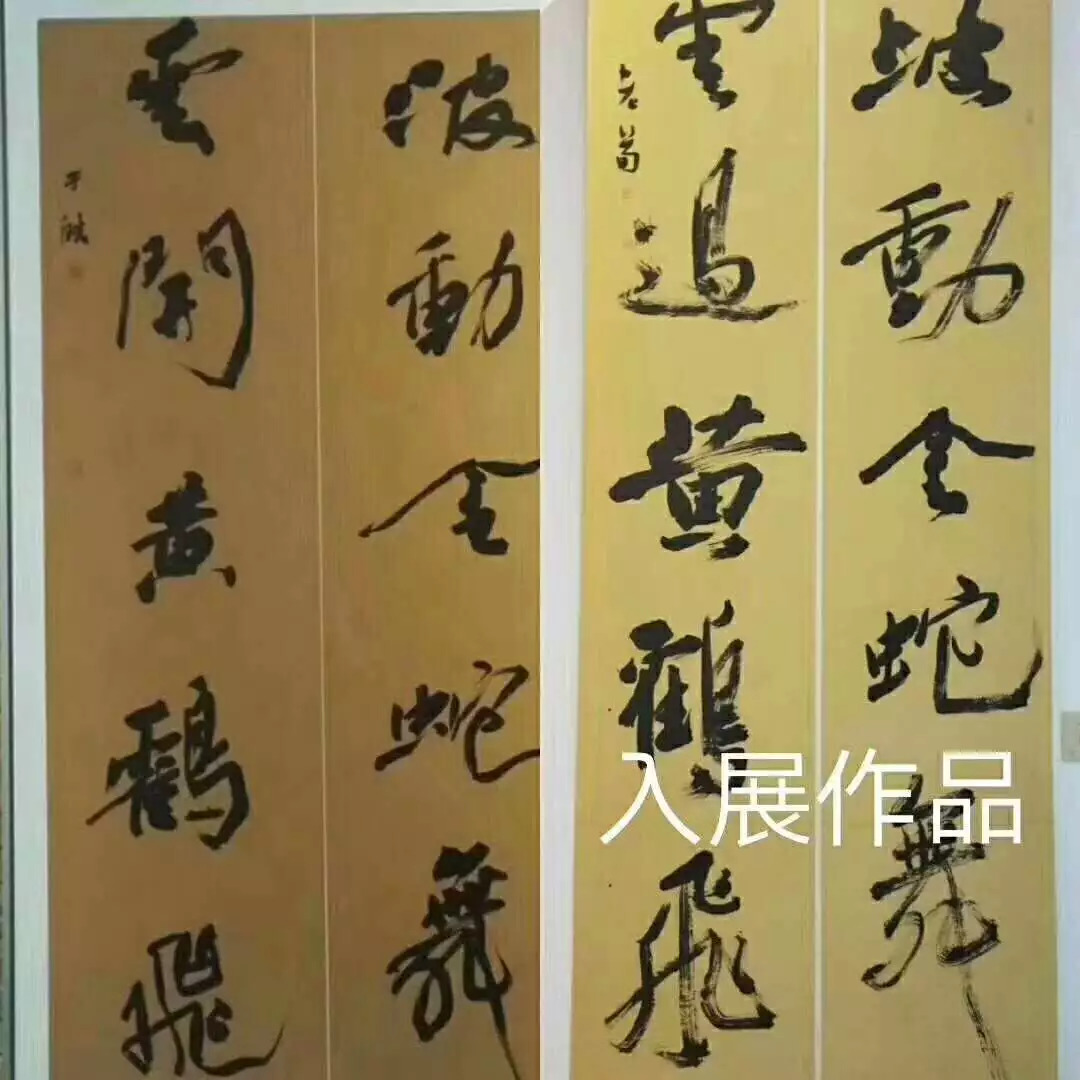 波動金蛇舞
雲開黄鶴飛
波動金蛇舞
雲過黄鶴飛
入展作品